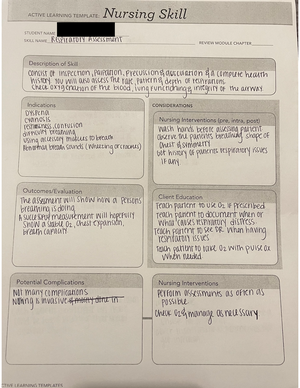 ACTIVE LEARNING TEMPLATE: Nursing Skill
STUDENT NAME
SKILL NAME Respiratory Assessment REVIEW MODULE CHAPTER
Description of Skill
Consist of inspection, Palpation, Precussion & auscultation & a complete health
history. You will also assess the rate, pattern & depth of respirations.
Check oxygenation of the blood, lung functioning & integrity of the airway
Indications
Dyspnea
cyanosis
restlessness, confusion
difficulty breathing
using accessory muscles to breath
Abnormal breath sounds (Wheezing or crackles)
CONSIDERATIONS
Nursing Interventions (pre, intra, post)
Wash hands before assessing patient
observe the patients breathing, shape of
chest & symmetry
Get history of patients respiratory issues
if any
Outcomes/Evaluation
The assessment will show how a persons
breathing is doing
A successful measurement will hopefully
show a stable O2, chest expansion,
breath capacity
Client Education
Teach patient to use O2 if prescribed
Teach patient to document when or
what causes respiratory distress
Teach patient to see DR. when having
respiratory issues
Teach patient to take O2 with pulse ox
when needed
Potential Complications
Not many complications
Nothing is invasive
Nursing Interventions
Perform assessments as often as
possible
Check O2 & manage as necessary
ACTIVE LEARNING TEMPLATES